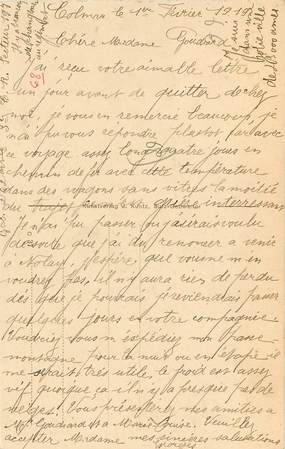 Colmar le 1er Février 1919
Chère Madame Gouchard
J'ai reçu votre aimable lettre
un jour avant de quitter de chez
moi, je vous en remercie beaucoup, je
n'ai pu vous répondre plustot car avec
ce voyage assez long quatre jours en
chemin de fer avec cette température
dans des wagons sans vitres la moitié
du trajet interressant
Je n'ai pu passer ou j'aurais voulu
de sorte que j'ai du renoncer a venir
à Nolay, j'espère, que vous ne m'en
voudrez pas, il n'y aura rien de perdu
dès que je pourrais je reviendrais passer
quelques jours en votre compagnie
Voudriez vous m'expédiez mon passe
montagne pour la nuit ou en
me serait très utile, le froid est assez
vif quoique ca il n'y a presque pas de
neige. Vous présenterez mes amitiés a
Mr Gouchard et a Marie Louise. Veuillez
accepter Madame mes sincères salutations
68
je suis
dans une
jolie ville
de